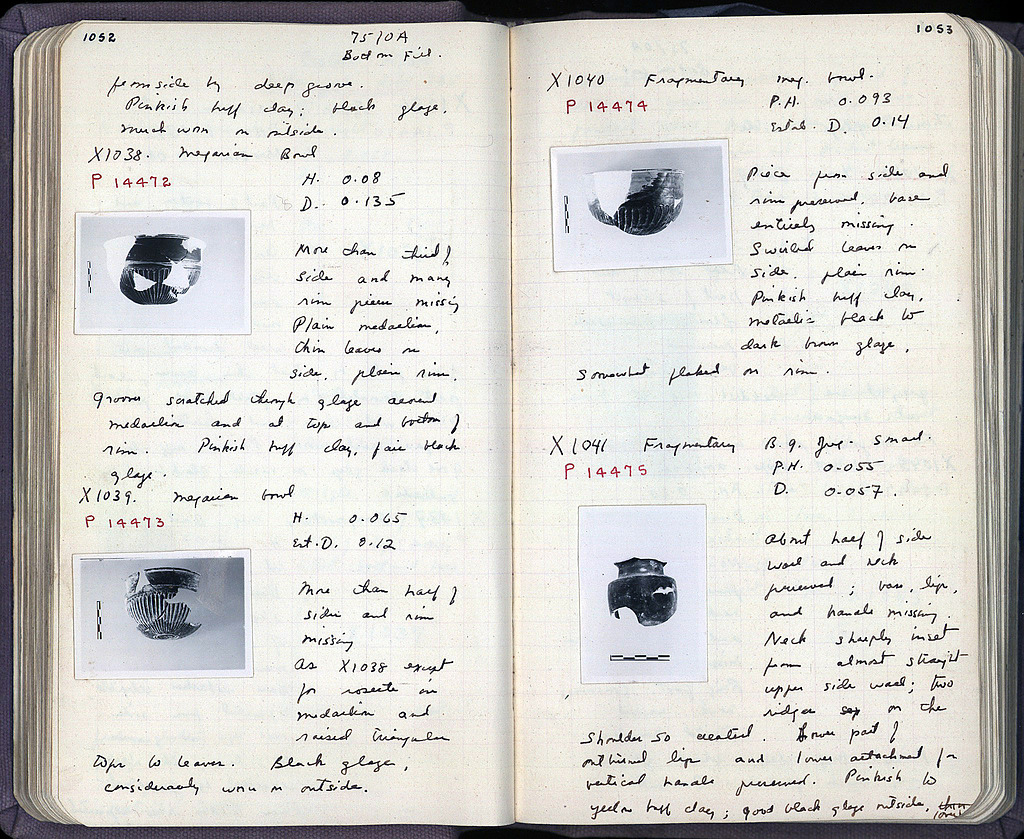 1052
75/0A
Bottom Fill.
from side by deep groove.
Pinkish buff clay; black glaze,
much worn on outside.
X1038. Megarian Bowl
P 14472
H. 0.08
D. 0.135
More than third of
side and many
rim pieces missing
Plain medallion,
thin leaves on
side, plain rim.
Grooves scratched through glaze around
medallion and at top and bottom of
rim. Pinkish buff clay, fair black
glaze
X1039. Megarian bowl
P 14473
H. 0.065
Est. D. 0.12
More than half of
side and rim
missing
As X1038 except
for rosette in
medallion and
raised triangular
tops to leaves. Black glaze,
considerably worn on outside.
1053
X1040 Fragmentary meg. bowl.
P 14474
P.H. 0.093
Estab. D. 0.14
Piece from side and
rim preserved, base
entirely missing.
Swirled leaves on
side, plain rim.
Pinkish buff clay,
metallic black to
dark brown glaze,
somewhat flaked on rim.
X1041 Fragmentary B.g. Jug - small.
P 14475
P.H. 0.055
D. 0.057.
About half of side
wall and neck
preserved; base, lip,
and handle missing.
Neck sharply inset
from almost straight
upper side wall; two
ridges on the
shoulder so created. Lower part of
outturned lip and lower attachment for
vertical handle preserved. Pinkish to
yellow buff clay; good black glaze outside,